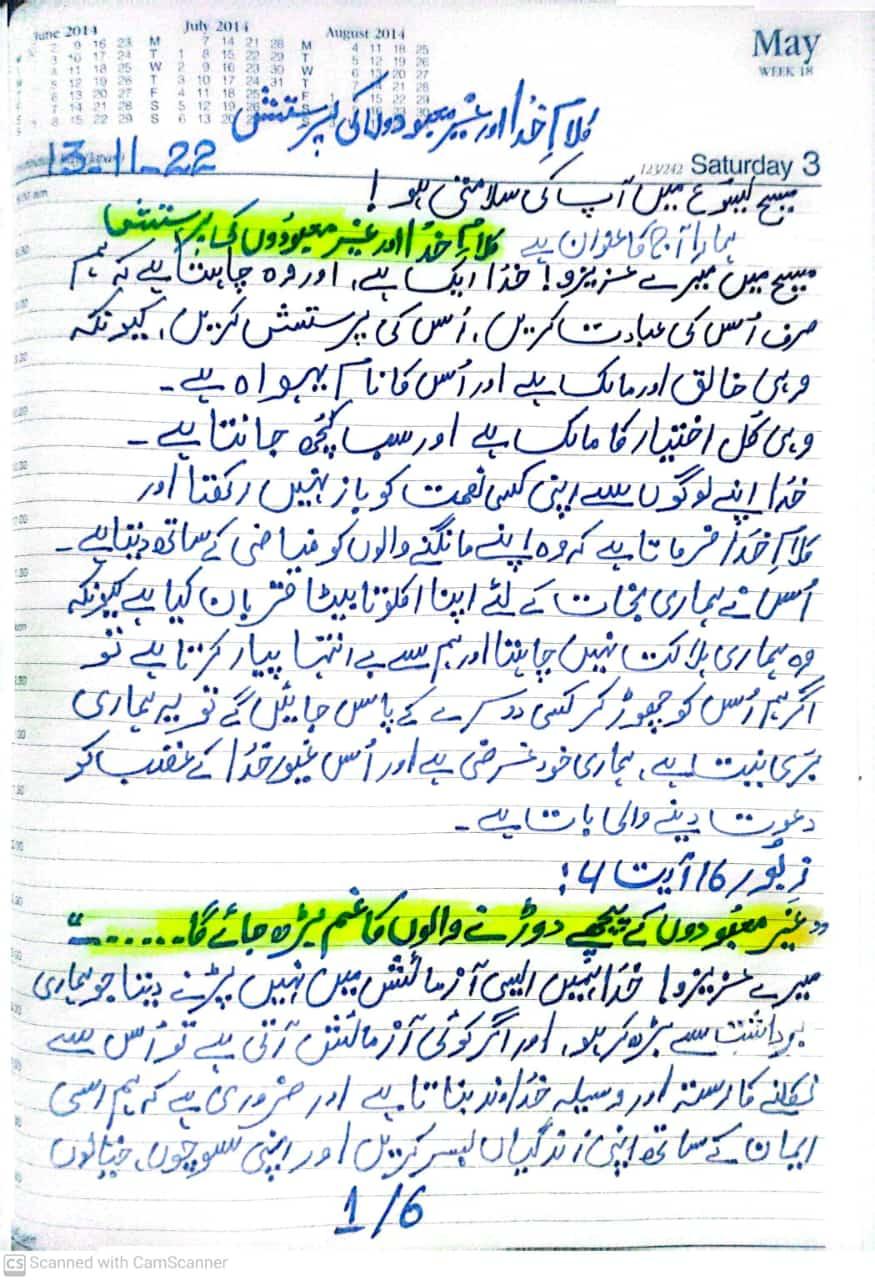 June 2014
July 2014
August 2014
May
WEEK 18
کلامِ خُدا اور غیر معبودوں کی پرستش
13-11-22
123/242 Saturday 3
مسیح یسوع میں آپ کی سلامتی ہو!
ہمارا آج کا عنوان ہے کلامِ خُدا اور غیر معبُودوں کی پرستش
مسیح میں میرے عزیزو! خُدا ایک ہے، اور وہ چاہتا ہے کہ ہم
صرف اُس کی عبادت کریں، اُس کی پرستش کریں، کیونکہ
وہی خالق اور مالک ہے اور اُس کا نام یہوواہ ہے۔
وہی کُل اختیار کا مالک ہے اور سب کچُھ جانتا ہے۔
خُدا اپنے لوگوں سے اپنی کسی نعمت کو باز نہیں رکھتا اور
کلامِ خُدا فرماتا ہے کہ وہ اپنے مانگنے والوں کو فیاضی کے ساتھ دیتا ہے۔
اُس نے ہماری نجات کے لئے اپنا اکلوتا بیٹا قربان کیا ہے کیونکہ
وہ ہماری ہلاکت نہیں چاہتا اور ہم سے بے انتہا پیار کرتا ہے تو
اگر ہم اُس کو چھوڑ کر کسی دوسرے کے پاس جائیں گے تو یہ ہماری
بَری نیت ہے، ہماری خود غرضی ہے اور اُس غیور خُدا کے غضب کو
دعوت دینے والی بات ہے۔
زبُور 16 آیت 4:
”غیر معبُودوں کے پیچھے دوڑنے والوں کا غم بڑھ جائے گا......۔“
میرے عزیزو! خُدا ہمیں ایسی آزمائش میں نہیں پڑنے دیتا جو ہماری
برداشت سے بڑھ کر ہو، اور اگر کوئی آزمائش آتی ہے تو اُس سے
نکلنے کا رستہ اور وسیلہ خُداوند بناتا ہے اور ضروری ہے کہ ہم اسی
ایمان کے ساتھ اپنی زندگیاں بسر کریں اور اپنی سوچوں، خیالوں
1/6
CS Scanned with CamScanner